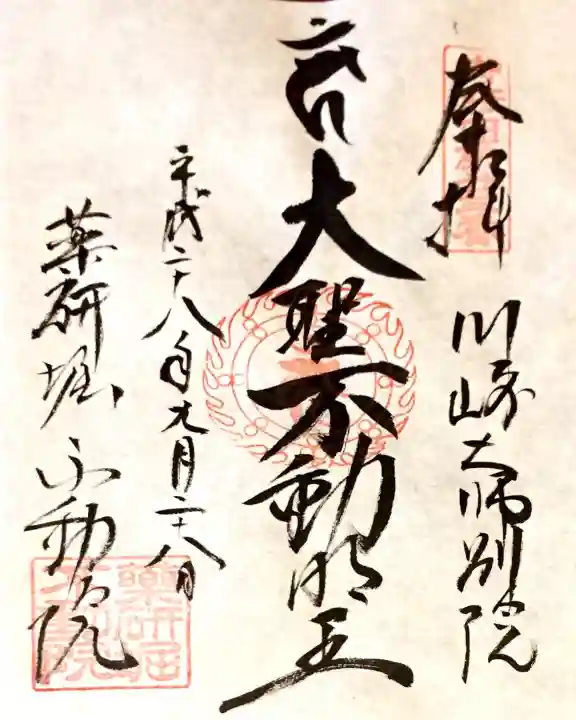 奉拝
川崎大師別院
大聖不動明王
平成二十八年九月二十八日
薬研堀不動院